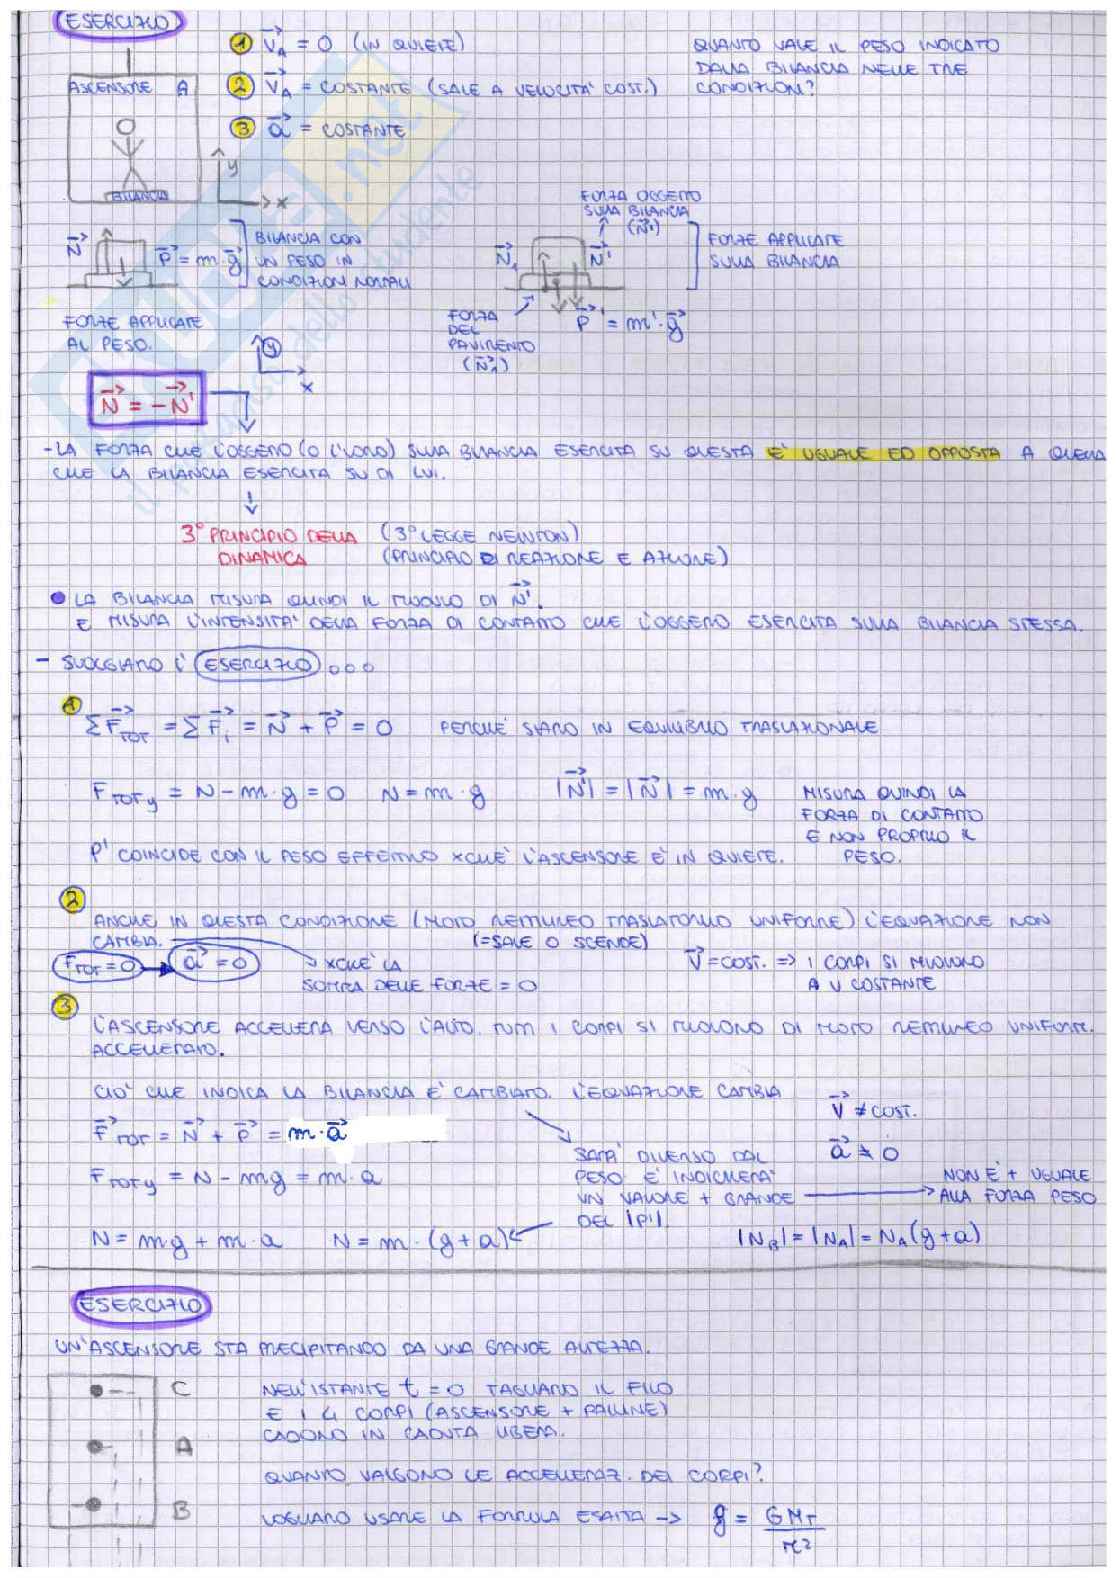 ESERCIZIO
1 V_A = 0 (IN QUIETE)
2 V_A = COSTANTE (SALE A VELOCITA' COST.)
3 a = COSTANTE
QUANTO VALE IL PESO INDICATO
DALLA BILANCIA NELLE TRE
CONDIZIONI?
ASCENSORE A
BILANCIA
y
x
N
P = m·g
BILANCIA CON
UN PESO IN
CONDIZIONI NORMALI
FORZE APPLICATE
AL PESO.
FORZA OGGETTO
SULLA BILANCIA
(N')
N₁
N'
FORZE APPLICATE
SULLA BILANCIA
FORZA
DEL
PAVIMENTO
(N₁)
P' = m'·g
y
x
N = -N'
- LA FORZA CHE L'OGGETTO (O L'UOMO) SULLA BILANCIA ESERCITA SU QUESTA E' UGUALE ED OPPOSTA A QUELLA
CHE LA BILANCIA ESERCITA SU DI LUI.
3° PRINCIPIO DELLA (3° LEGGE NEWTON)
DINAMICA (PRINCIPIO DI REAZIONE E AZIONE)
LA BILANCIA MISURA QUINDI IL MODULO DI N'.
E MISURA L'INTENSITA' DELLA FORZA DI CONTATTO CHE L'OGGETTO ESERCITA SULLA BILANCIA STESSA.
- SVOLGIAMO L'ESERCIZIO...
1
ΣF_TOT = ΣF_i = N + P = 0 PERCHE' SIAMO IN EQUILIBRIO TRASLAZIONALE
F_TOT y = N - m·g = 0 N = m·g |N'| = |N| = m·g
MISURA QUINDI LA
FORZA DI CONTATTO
E NON PROPRIO IL
PESO.
P' COINCIDE CON IL PESO EFFETTIVO XCHE' L'ASCENSORE E' IN QUIETE.
2
ANCHE IN QUESTA CONDIZIONE (MOTO RETTILINEO TRASLATORIO UNIFORME) L'EQUAZIONE NON
CAMBIA. (=SALE O SCENDE)
F_TOT = 0 a = 0
XCHE' LA
SOMMA DELLE FORZE = 0
V = COST. => I CORPI SI MUOVONO
A V COSTANTE
3
L'ASCENSORE ACCELLERA VERSO L'ALTO. TUTTI I CORPI SI MUOVONO DI MOTO RETTILINEO UNIFORM.
ACCELLERATO.
CIO' CHE INDICA LA BILANCIA E' CAMBIATO. L'EQUAZIONE CAMBIA
V ≠ COST.
a ≠ 0
F_TOT = N + P = m·a
F_TOT y = N - mg = m·a
SARA' DIVERSO DAL
PESO E INDICHERA'
UN VALORE + GRANDE
DEL |P|.
NON E' + UGUALE
ALLA FORZA PESO
N = mg + m·a N = m·(g+a)
|N_B| = |N_A| = N_A(g+a)
ESERCIZIO
UN'ASCENSORE STA PRECIPITANDO DA UNA GRANDE ALTEZZA.
C
A
B
NELL'ISTANTE t = 0 TAGLIAMO IL FILO
E I 4 CORPI (ASCENSORE + PALLINE)
CADONO IN CADUTA LIBERA.
QUANTO VALGONO LE ACCELLERAZ. DEI CORPI?
VOGLIAMO USARE LA FORMULA ESATTA -> g = GM_T / r²